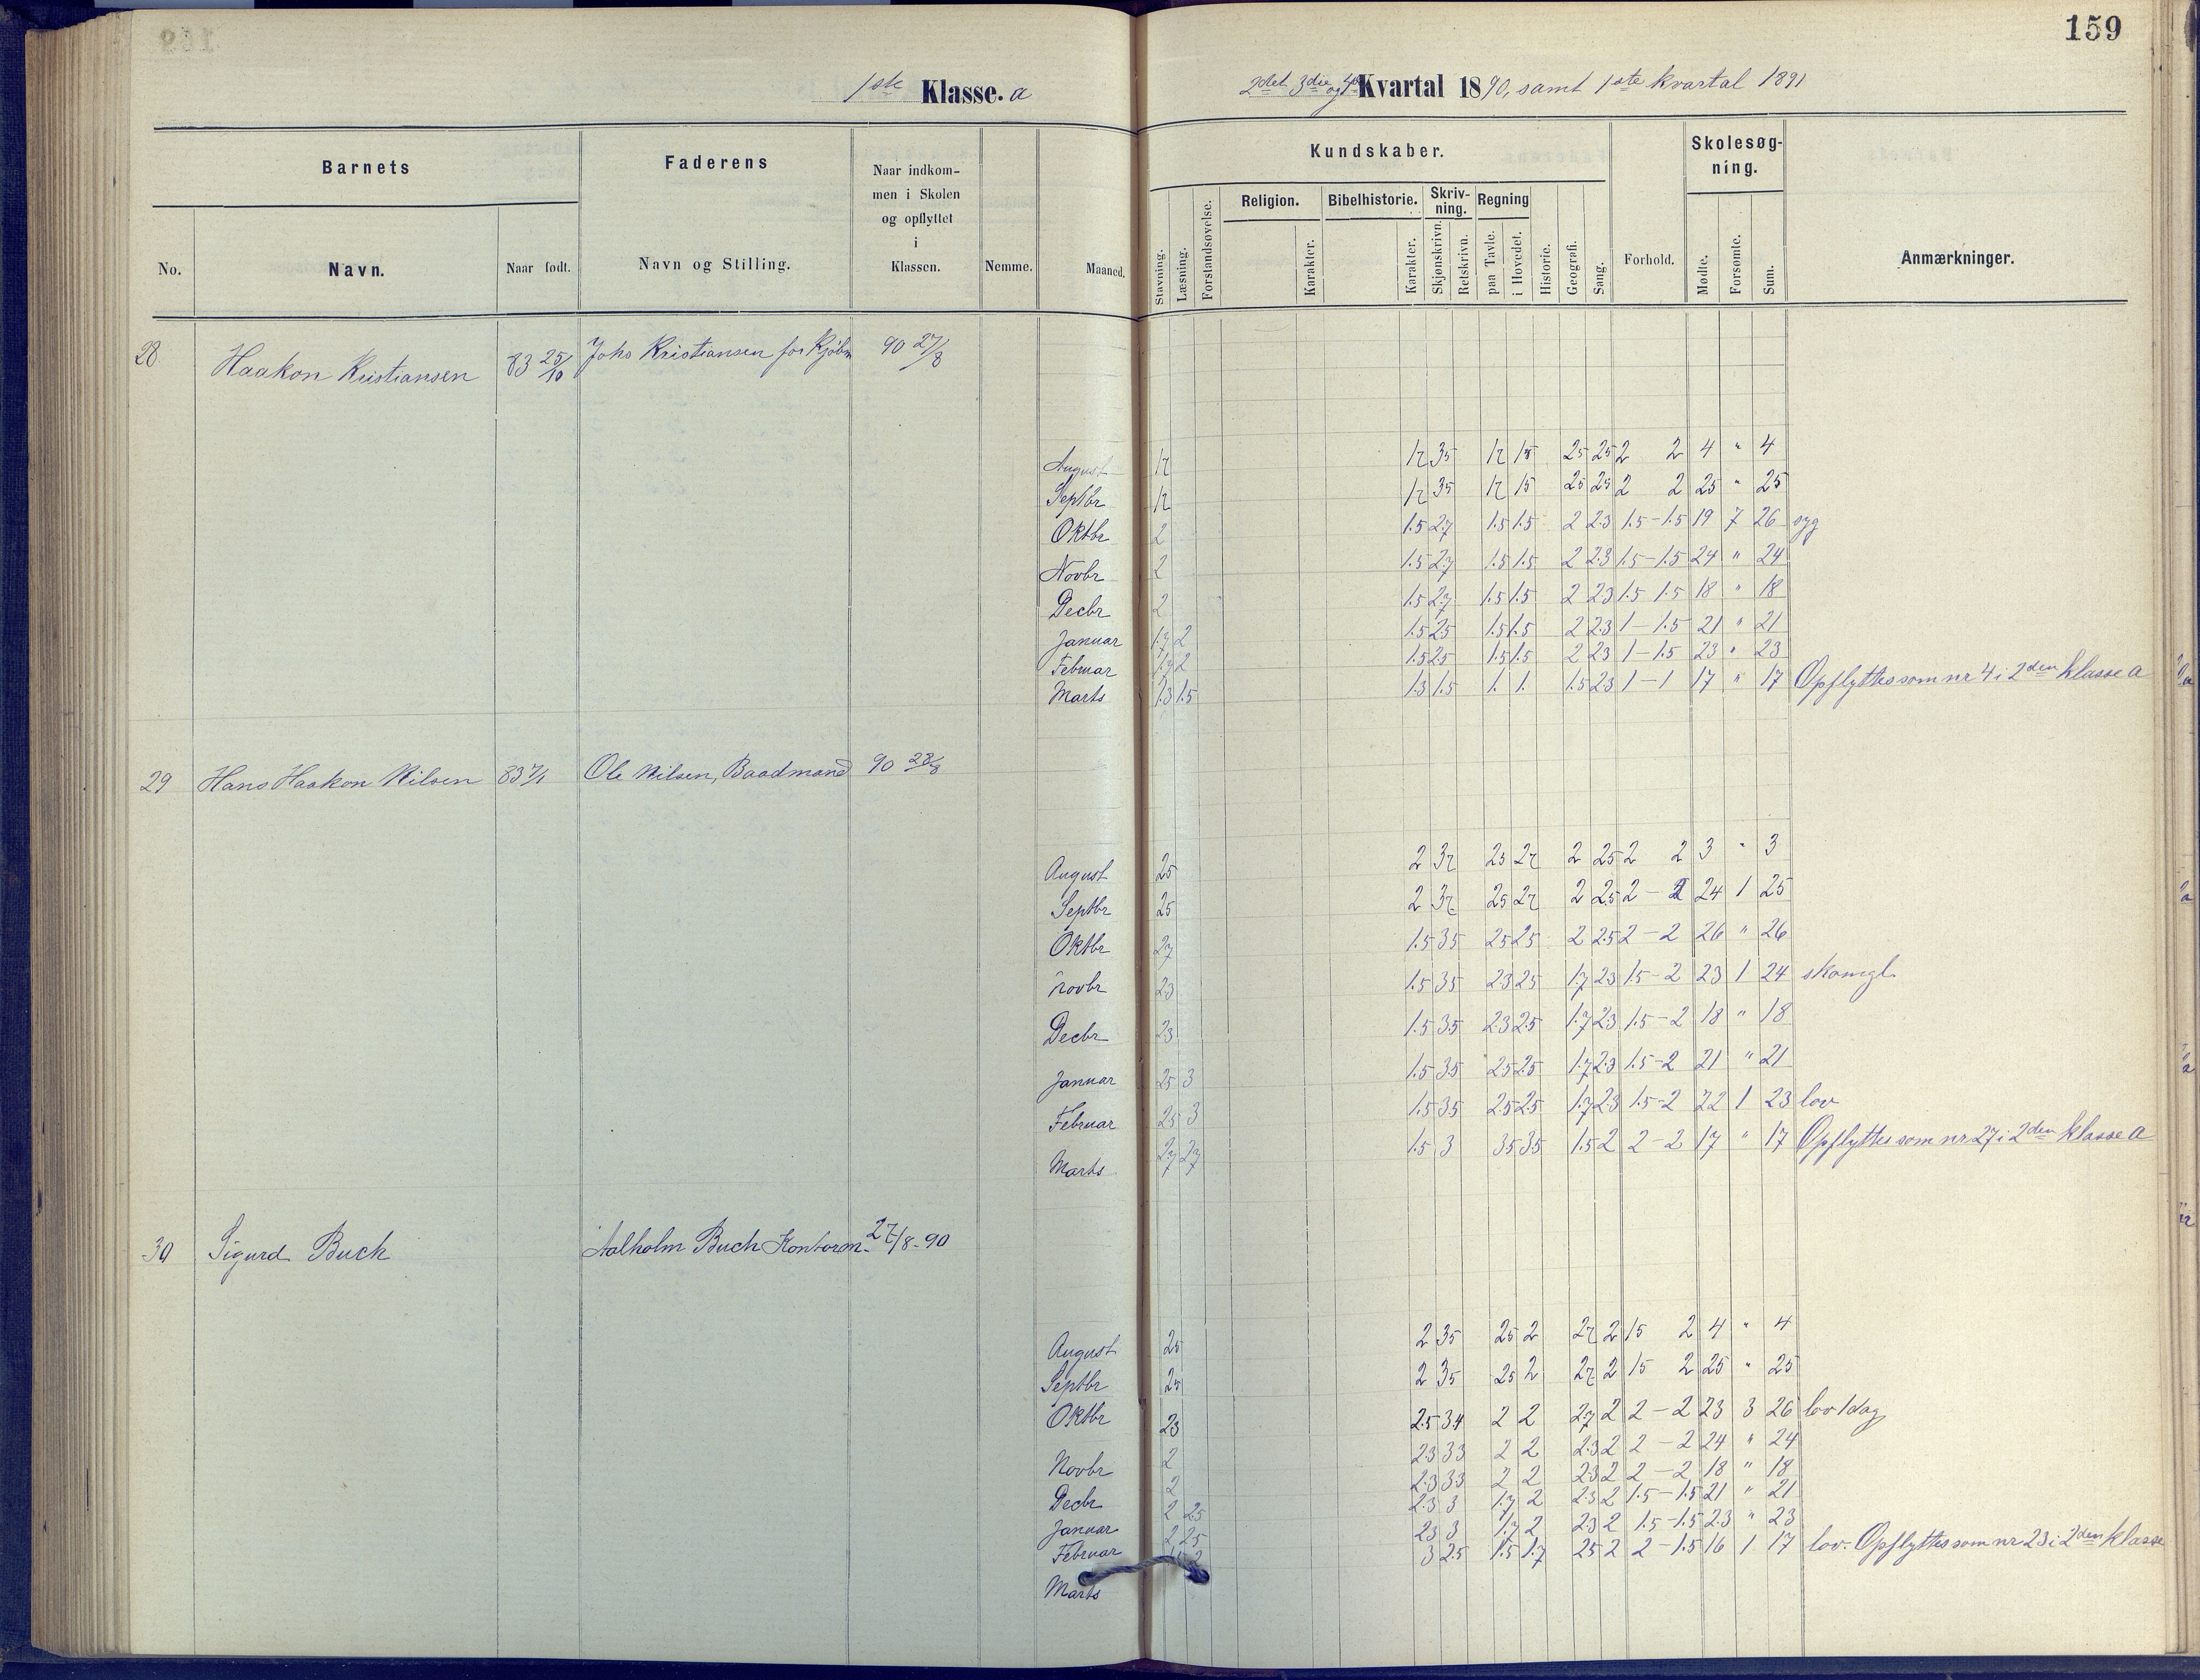 159
1ste Klasse. a
2det 3die og 4de Kvartal 1890, samt 1ste kvartal 1891
Barnets
Faderens
Naar indkom-
men i Skolen
og opflyttet
i
Klassen.
Nemme.
Maaned.
No.
Navn.
Naar født.
Navn og Stilling.
Kundskaber.
Skolesøg-
ning.
Stavning.
Læsning.
Forstandsøvelse.
Religion.
Karakter.
Bibelhistorie.
Karakter.
Skriv-
ning.
Skjønskrivn.
Retskrivn.
Regning
paa Tavle.
i Hovedet.
Historie.
Geografi.
Sang.
Forhold.
Mødte.
Forsømte.
Sum.
Anmærkninger.
28 Haakon Kristiansen 83 25/10 Johs Kristiansen 90 27/8
August 17 17 35 17 15 25 25 2 2 4 " 4
Septbr 17 17 35 17 15 25 25 2 2 25 " 25
Oktbr 2 1.5 2.7 1.5 1.5 2 2.3 1.5-1.5 19 7 26 syg
Novbr 2 1.5 2.7 1.5 1.5 2 2.3 1.5-1.5 24 " 24
Decbr 2 1.5 2.7 1.5 1.5 2 23 1.5 1.5 18 " 18
Januar 1.7 2 1.5 25 1.5 1.5 2 2.3 1-1.5 21 " 21
Februar 1.7 2 1.5 2.5 1.5 1.5 2 23 1-1.5 23 " 23
Marts 1.3 1.5 1.3 1.5 1. 1. 1.5 23 1-1 17 " 17 Opflyttes som nr 4 i 2den klasse a
29 Hans Haakon Nilsen 83 7/1 Ole Nilsen, Baadmand 90 28/8
August 25 2 37 25 27 2 25 2 2 3 " 3
Septbr 25 2 37 25 27 2 2.5 2-2 24 1 25
Oktbr 27 1.5 35 25 25 2 2.5 2-2 26 " 26
Novbr 23 1.5 35 2.3 25 1.7 23 1.5-2 23 1 24 skomgl.
Decbr 23 1.5 3.5 2.3 2.5 1.7 2.3 1.5-2 18 " 18
Januar 25 3 1.5 3.5 25 2.5 1.7 2.3 1.5-2 21 " 21
Februar 25 3 1.5 35 2.5 25 1.7 23 1.5-2 22 1 23 lov
Marts 27 27 1.5 3 35 35 1.5 2 2-2 17 " 17 Opflyttes som nr 27 i 2den klasse a
30 Sigurd Buch Aalholm Buch Kontorm. 27/8-90
August 25 2 35 25 2 27 2 15 2 4 " 4
Septbr 25 2 35 25 2 27 2 15 2 25 " 25
Oktbr 23 2.5 3.4 2 2 2.7 2 2-2 23 3 26 lov 1 dag
Novbr 2 23 33 2 2 2.3 2 2-2 24 " 24
Decbr 2 2.3 3.3 2 2 23 2 2-2 18 " 18
Januar 2 25 2.3 3 1.7 2 2.3 2 1.5-1.5 21 " 21
Februar 2 25 23 3 1.7 2 23 2 1.5-1.5 23 " 23
Marts 3 2.5 1.5 1.7 25 2 2-1.5 16 1 17 lov. Opflyttes som nr 23 i 2den klasse